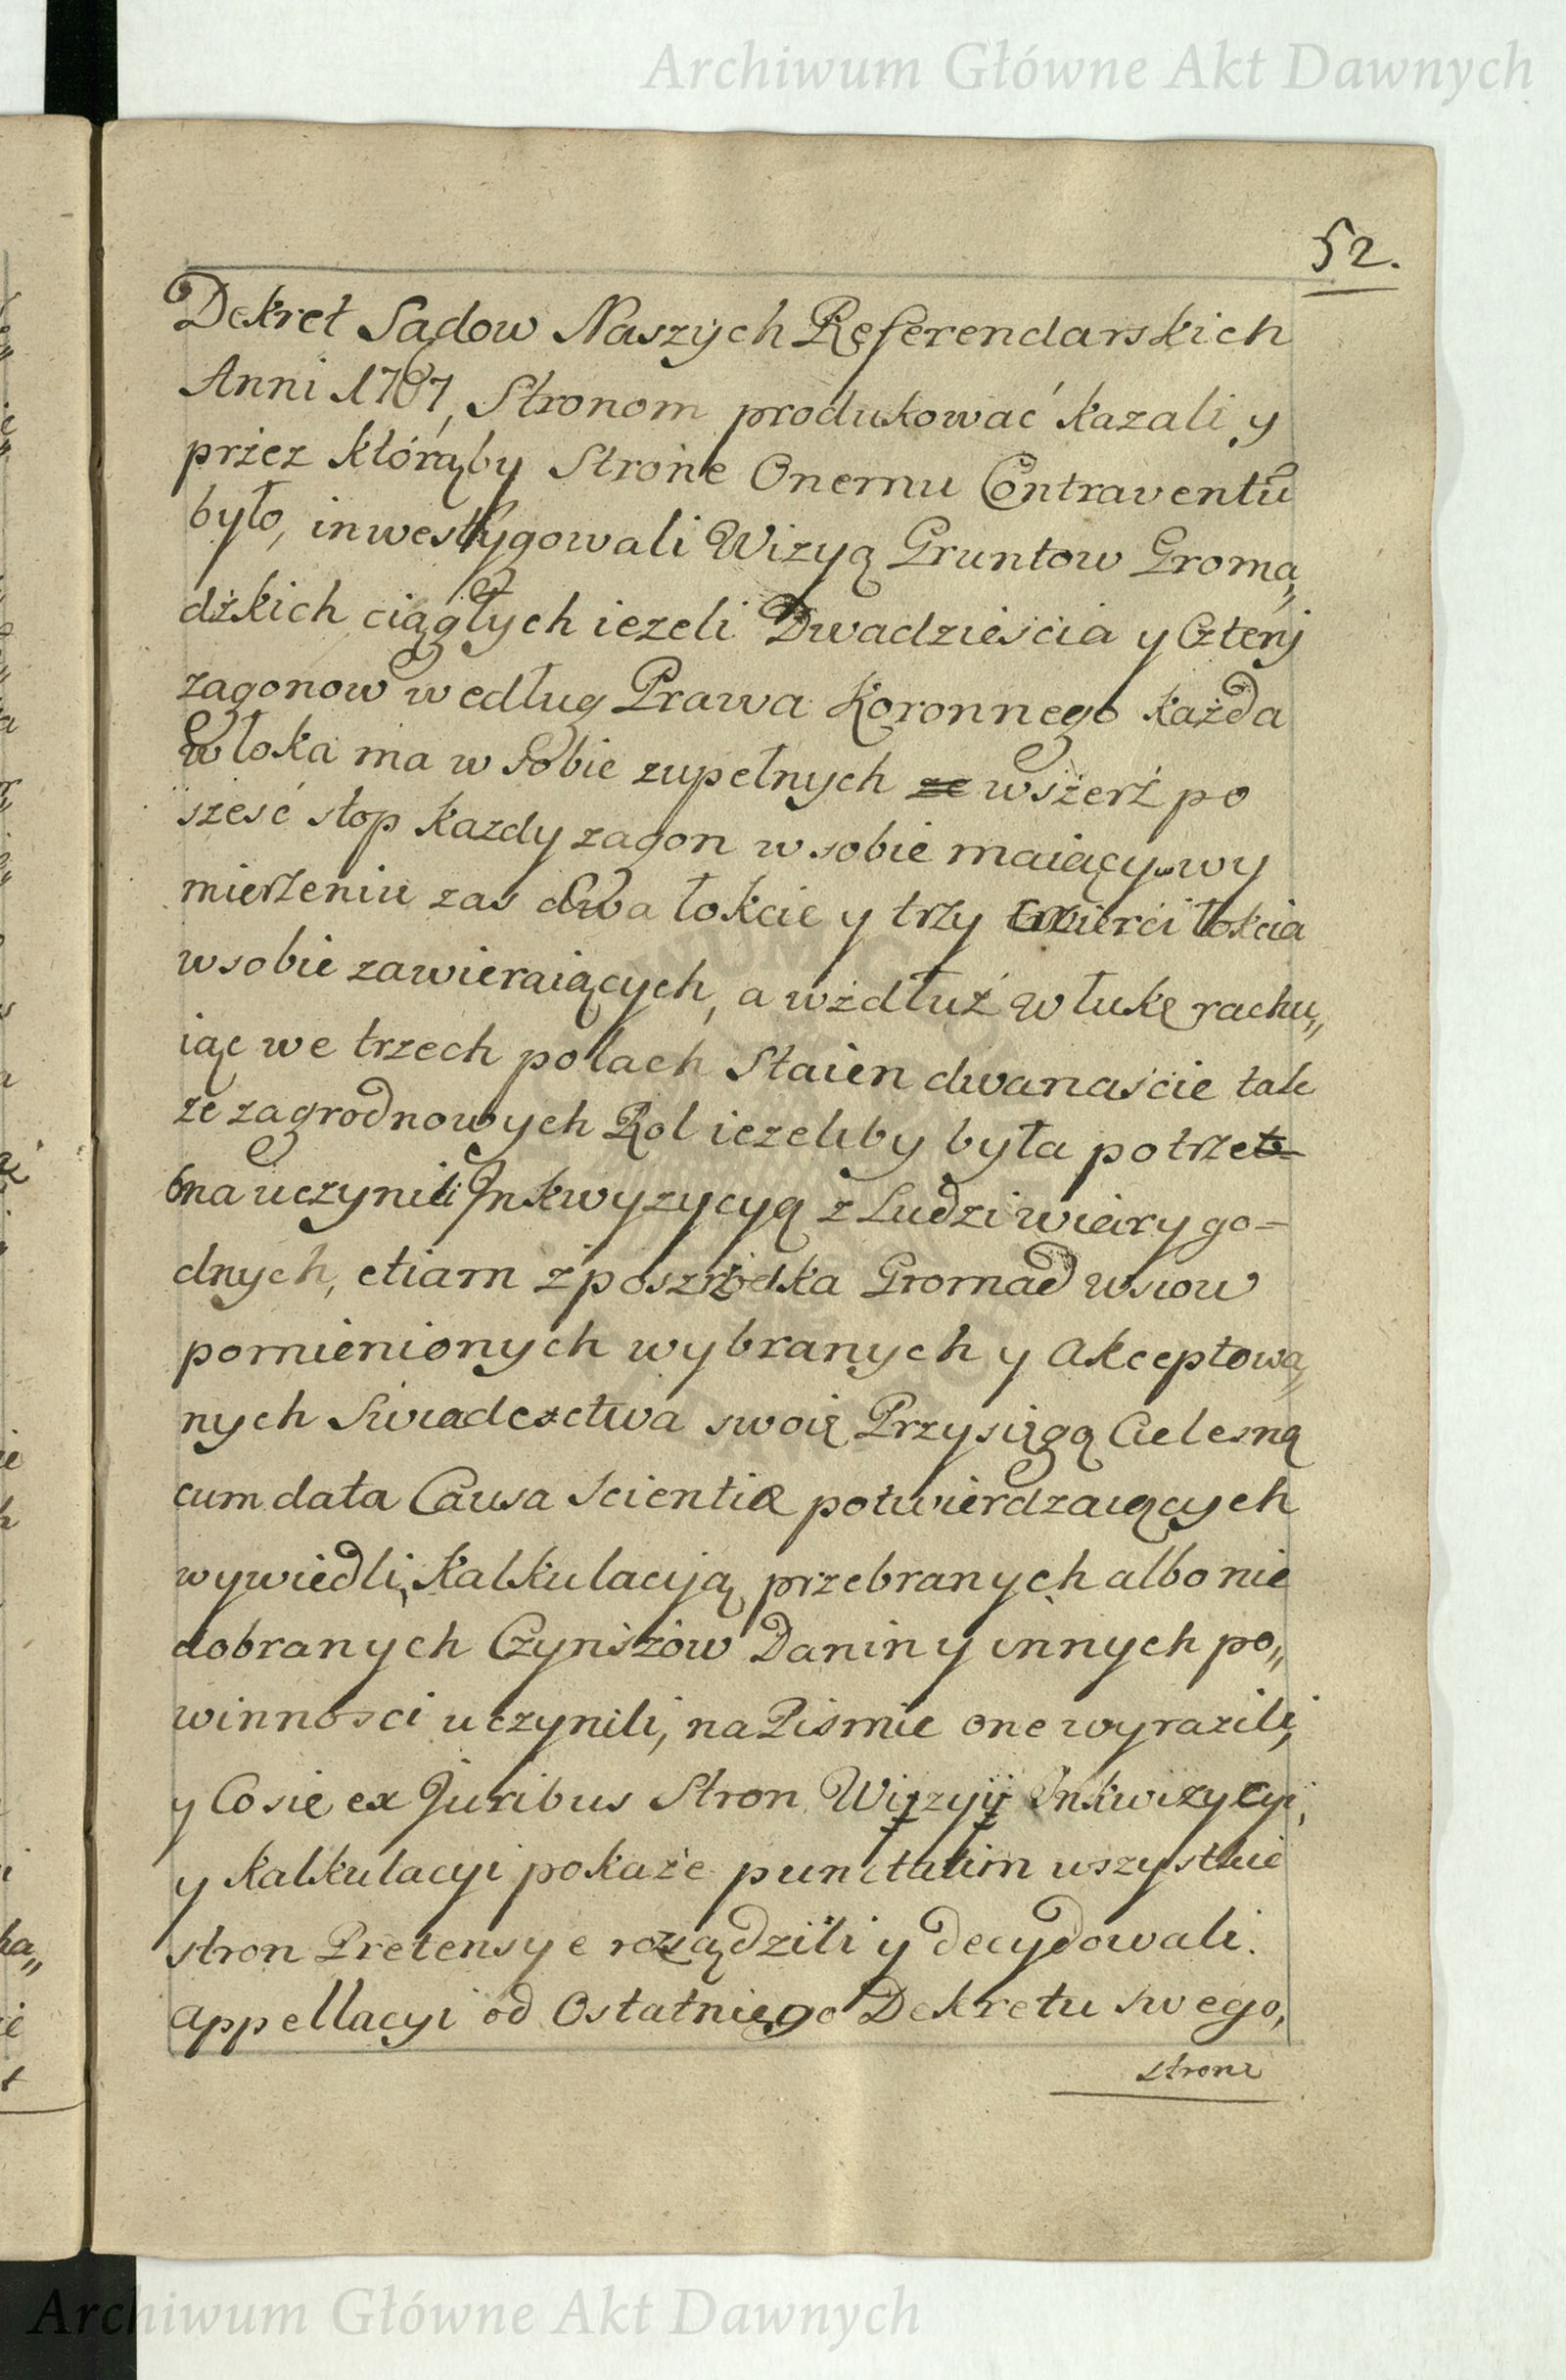 Archiwum Główne Akt Dawnych
52.
Dekret Sądow Naszych Referendarskich
Anni 1767, Stronom produkować kazali y
przez którąby Strone Onemu Contraventũ
było, inwestygowali Wizyą Gruntow Groma„
dzkich ciągłych iezeli Dwadzieścia y Czterj
zagonow według Prawa Koronnego każda
Włoka ma w sobie zupełnych wszerź po
sześć stop kazdy zagon w sobie maiący wy
mierzeniu zas dwa łokcie y trzy czwierci łokcia
wsobie zawieraiących, a wzdłuż Włukę rachu„
iąc we trzech polach Staien dwanaście tak
ze zagrodnowych Rol iezeliby była potrze
bna uczynili Inkwyzycyą z Ludzi wiary go=
dnych, etiam z pośrzodka Gromad wsiow
pomienionych wybranych y akceptowa„
nych Swiadectwa swoię Przysięgą Cielesną
cum data Causa scientiæ potwierdzaiących
wywiedli, kalkulacyją przebranych albo nie
dobranych Czynszow Danin y innych po„
winności uczynili, na Piśmie one wyrazili,
y Co sie ex Juribus Stron Wizyi Inkwizycyi,
y kalkulacyi pokaże punctatim wszystkie
stron Pretensye rozsądzili y decydowali.
appellacyi od Ostatniego Dekretu swego,
strone
Archiwum Główne Akt Dawnych